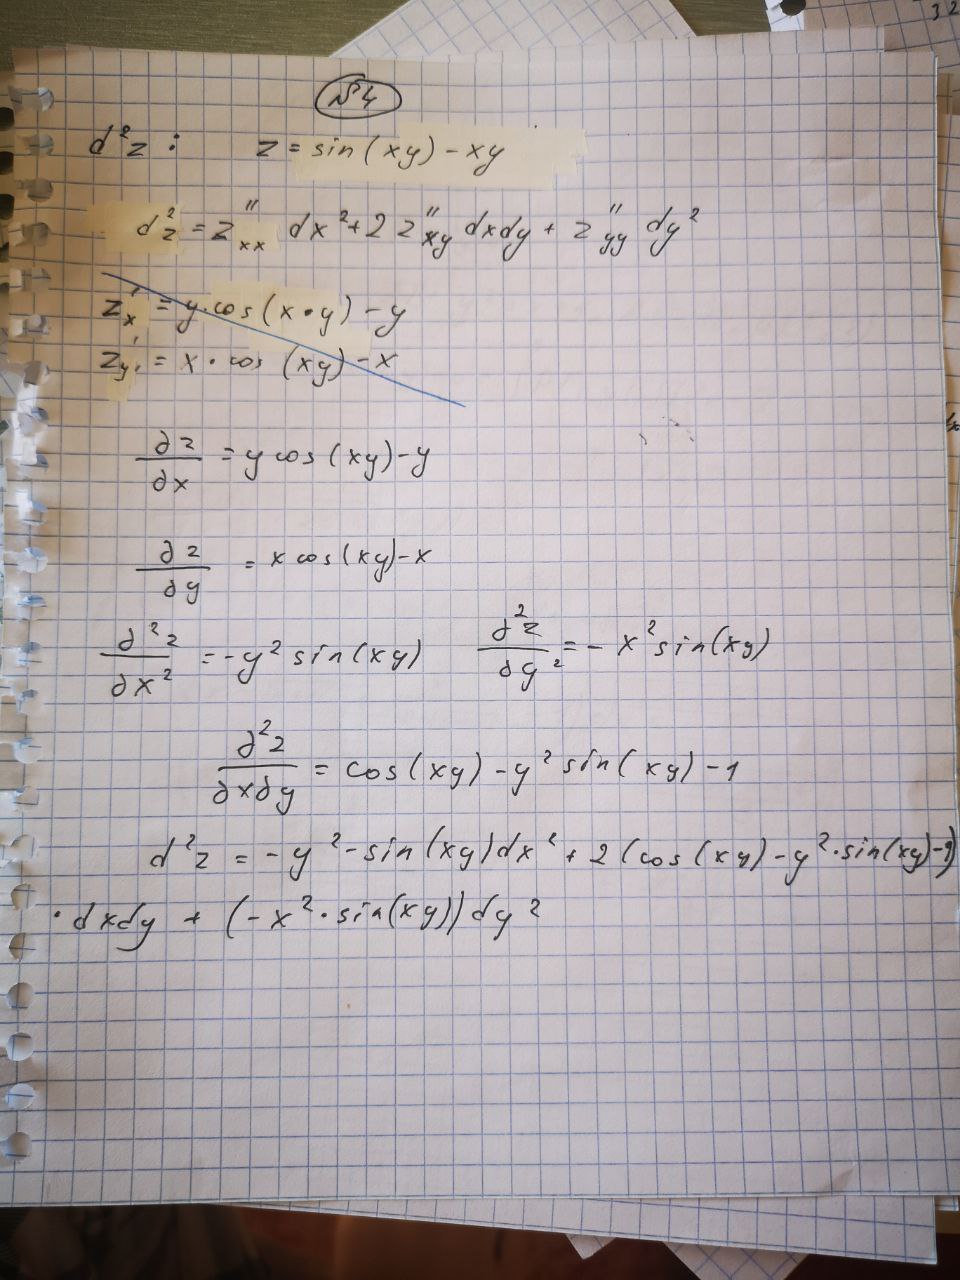 №4
d²z : z = sin(xy) - xy
d²z = z''xx dx² + 2 z''xy dxdy + z''yy dy²
z'x = y·cos(x·y) - y
z'y = x·cos(xy) - x
∂z/∂x = y cos(xy) - y
∂z/∂y = x cos(xy) - x
∂²z/∂x² = -y² sin(xy) ∂²z/∂y² = -x² sin(xy)
∂²z/∂x∂y = cos(xy) - y² sin(xy) - 1
d²z = -y² - sin(xy)dx² + 2(cos(xy) - y²·sin(xy) - 1)
·dxdy + (-x²·sin(xy))dy²
32